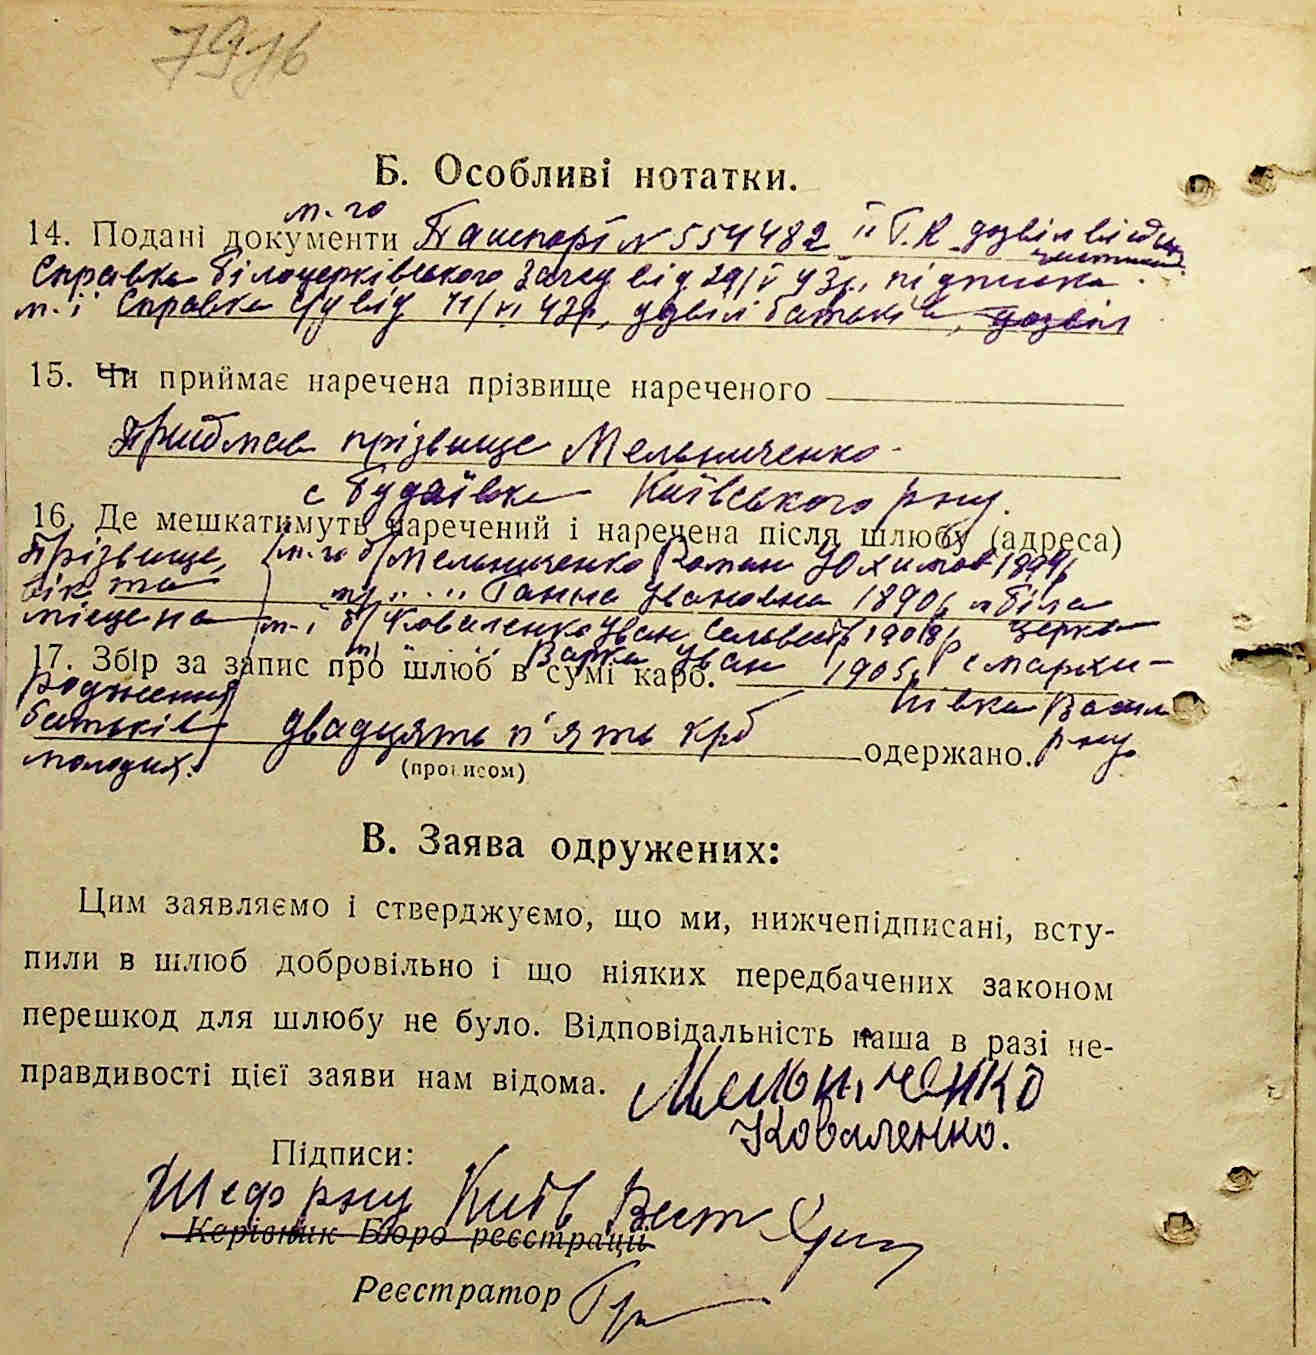 7916
Б. Особливі нотатки.
м-го
14. Подані документи Пашпорт N 554482 II Г.К дозвіл від
Справка Білоцерківського Загсу від 29/V 43р., підписка
м-ї Справка с/у від 11/VI 43р, дозвіл батьків, дозвіл
15. Чи приймає наречена прізвище нареченого
Приймає прізвище Мельниченко
с Будаївка Київського р-ну.
16. Де мешкатимуть наречений і наречена після шлюбу (адреса)
Прізвище, м-го б/ Мельниченко Роман Юхимов 1894р
вік та м/ " " Ганна Івановна 1890р м Біла
місце на м-ї б/ Коваленко Іван Сельвестр 1908р Церква
м/ " " Варка Іван 1905р с Мархи-
17. Збір за запис про шлюб в сумі карб.
родження нівка Васил
батьків двадцять п'ять крб одержано. р-ну
молодих. (прописом)
В. Заява одружених:
Цим заявляємо і стверджуємо, що ми, нижчепідписані, всту-
пили в шлюб добровільно і що ніяких передбачених законом
перешкод для шлюбу не було. Відповідальність наша в разі не-
правдивості цієї заяви нам відома. Мельниченко
Коваленко.
Підписи:
Шеф р-ну Київ Вест
Керівник Бюро реєстрації
Реєстратор